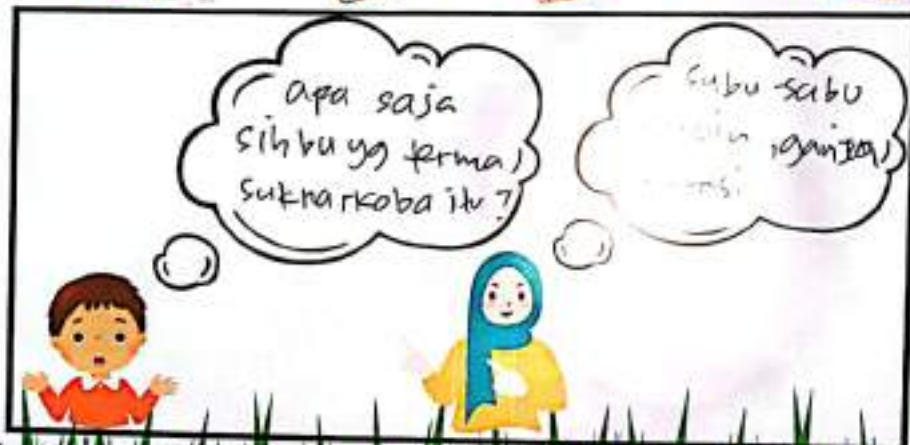 apa saja
sih bu yg terma)
suk narkoba itu?
sabu-sabu
, ganja)